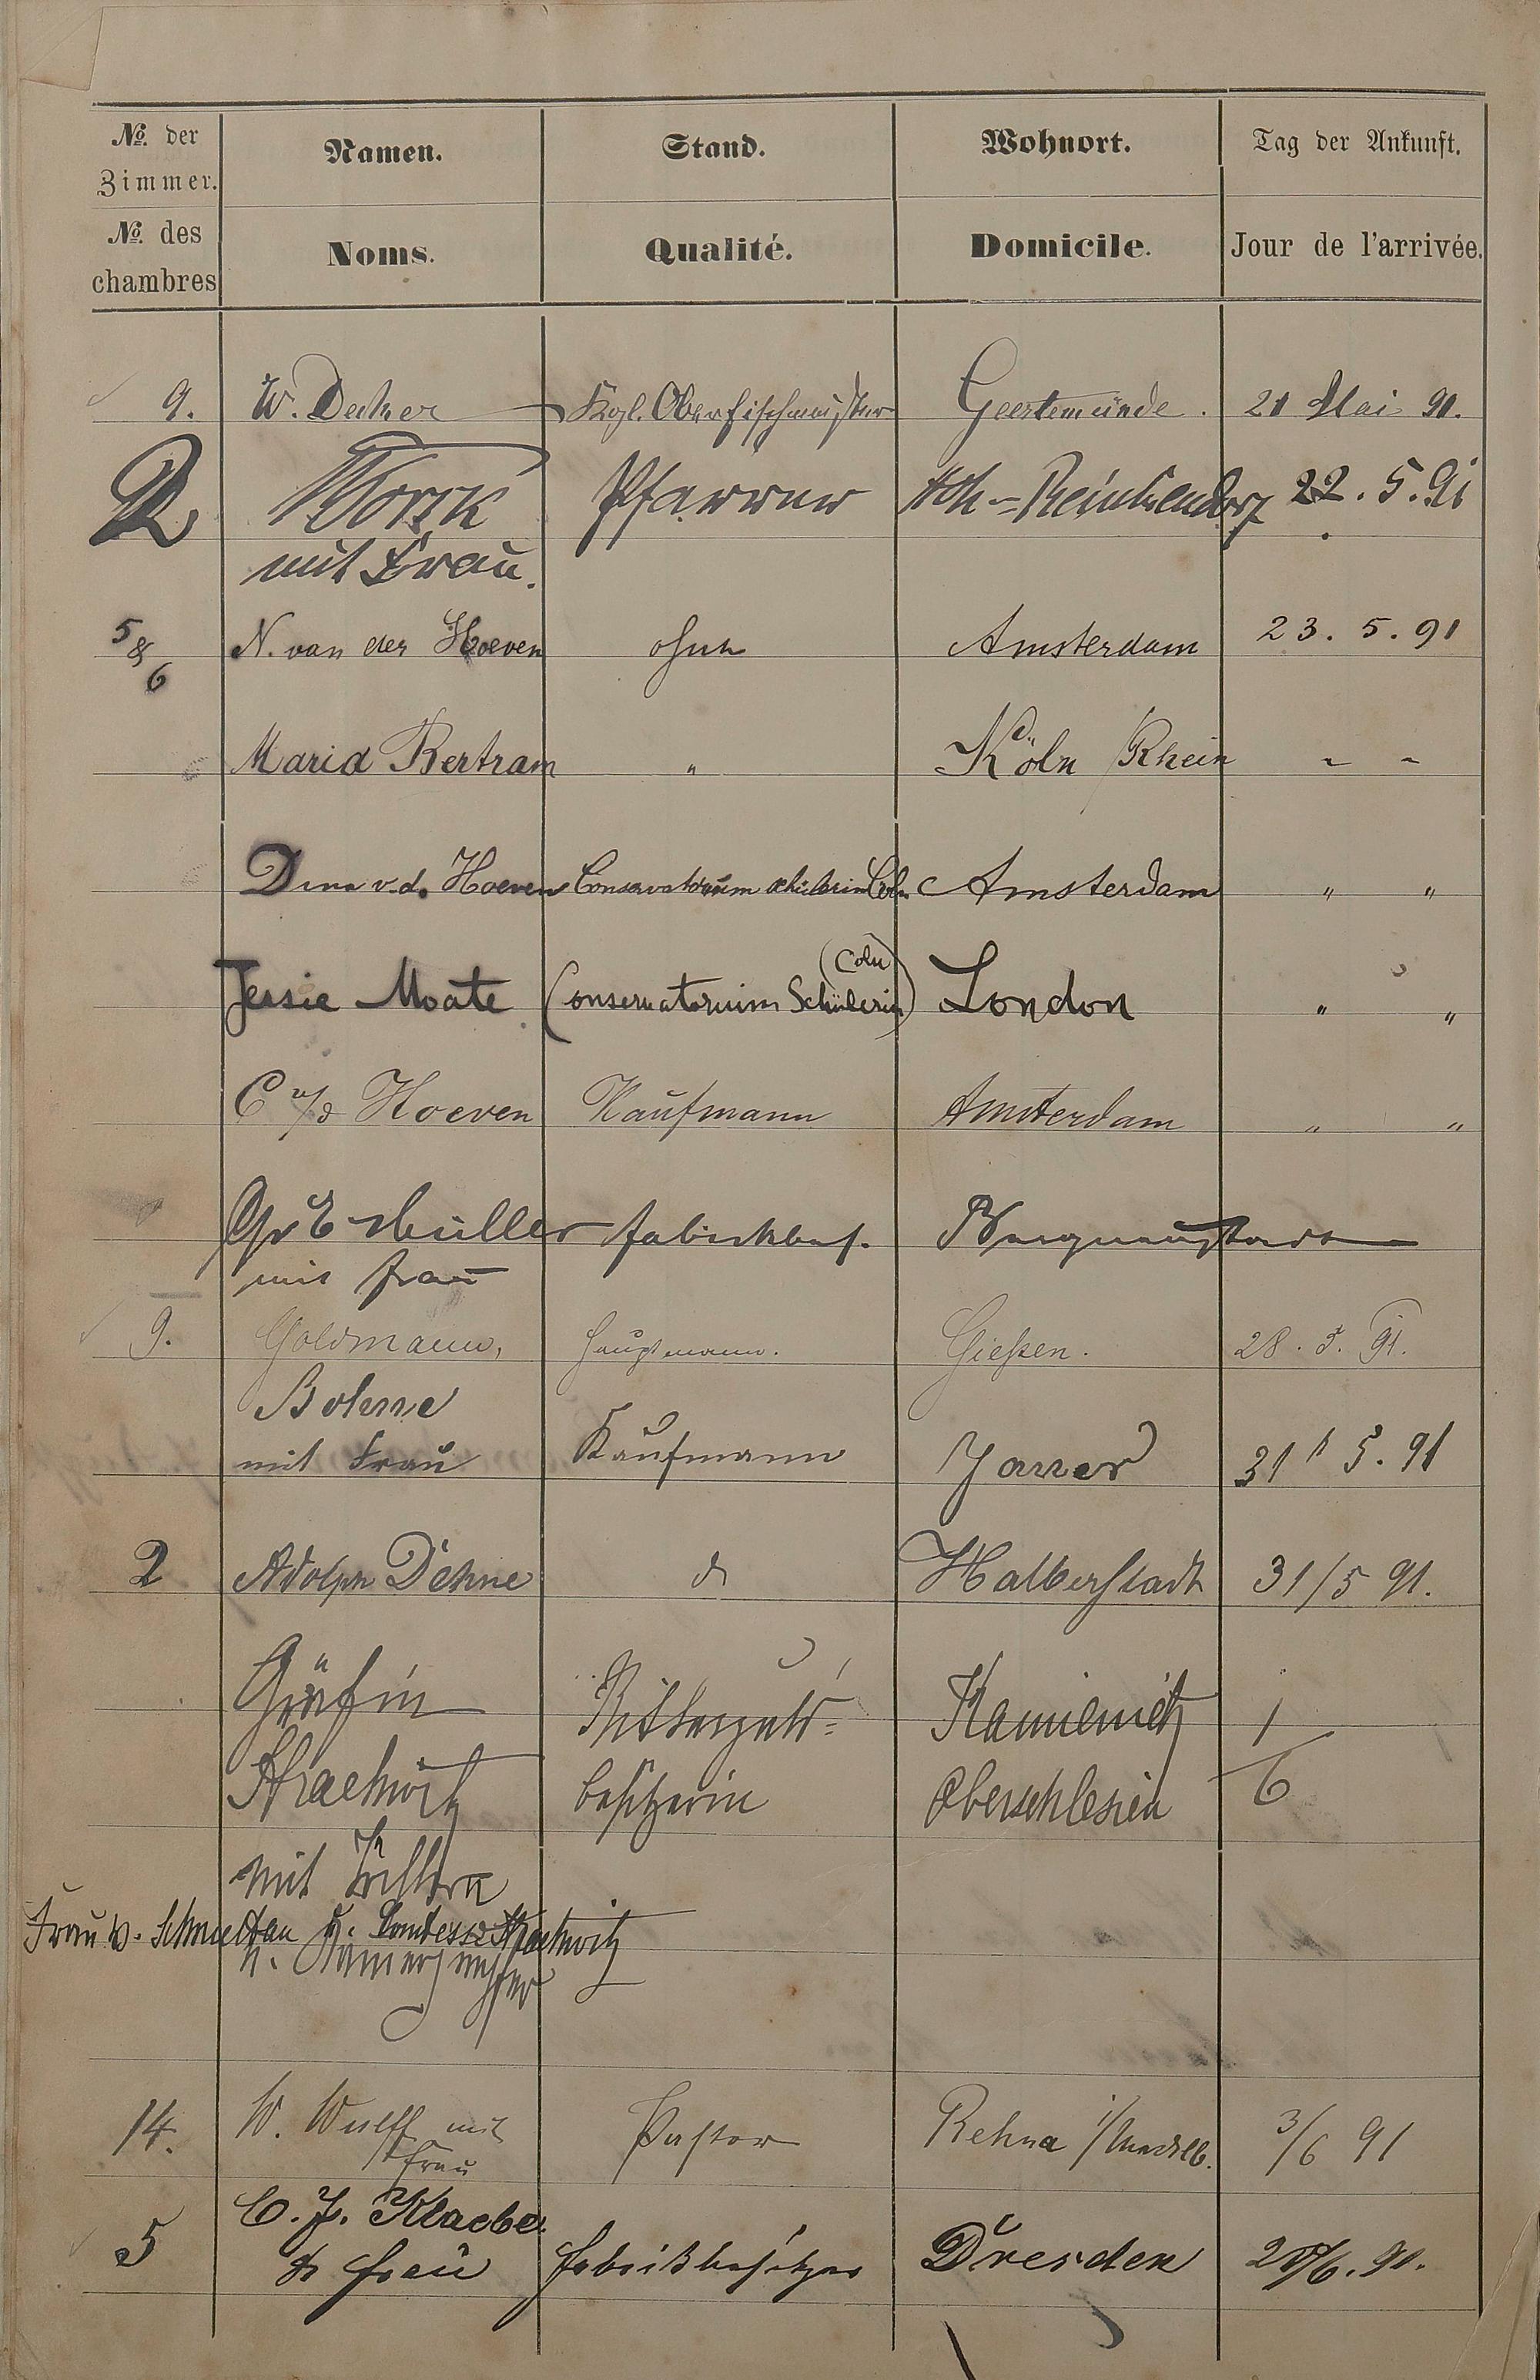 No. der Zimmer. Namen. Stand. Wohnort. Tag der Ankunft.
No. des chambres Noms. Qualité. Domicile. Jour de l'arrivée.
9. W. Decker Kgl. Oberfischmeister Geestemünde. 21 Mai 91.
2 Pfarrer 22. 5. 91
mit Frau.
5 & 6 N. van der Hoeven ohne Amsterdam 23. 5. 91
Maria Bertram " Köln /Rhein " "
Dina v. d. Hoeven Conservatorium schülerin Cöln Amsterdam " "
Jessie Moate (Conservatorium Schülerin) (Cöln) London " "
C v/d Hoeven Kaufmann Amsterdam " "
E Müller Fabrikbes.
mit Frau
9. Goldmann, Hauptmann. Gießen. 28. 5. 91.
Bohne
mit Frau Kaufmann Jauer 31/5. 91
2 Adolph Dehne do Halberstadt 31/5 91.
Gräfin Ritterguts- Kamienietz 1
Strachwitz besitzerin Oberschlesien 6
mit Töchtern
Frau v. Schmettau u. Comtesse Strachwitz
u. Kammerjungfer
14. W. Wulff mit Pastor Rehna i/Mecklb. 3/6 91
Frau
C. F. Klaeber
5 & Frau Fabrikbesitzer Dresden